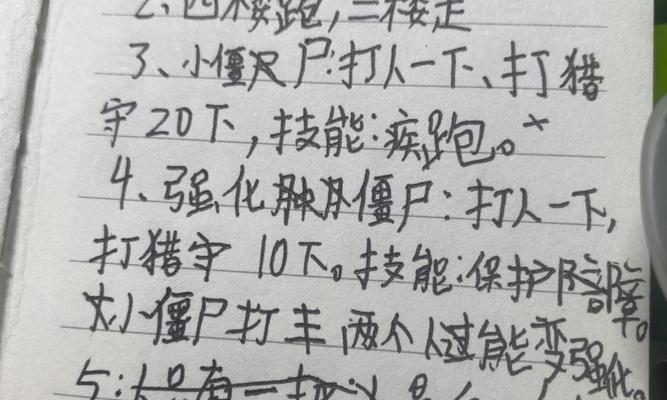 2、四楼跑,三楼走
3、小僵尸:打人一下、打猎
守20下,技能:疾跑。
4、强化僵尸:打人一下,
打猎守10下。技能:保护障。
小僵尸打丰两个人过能变强化。
5:只有一